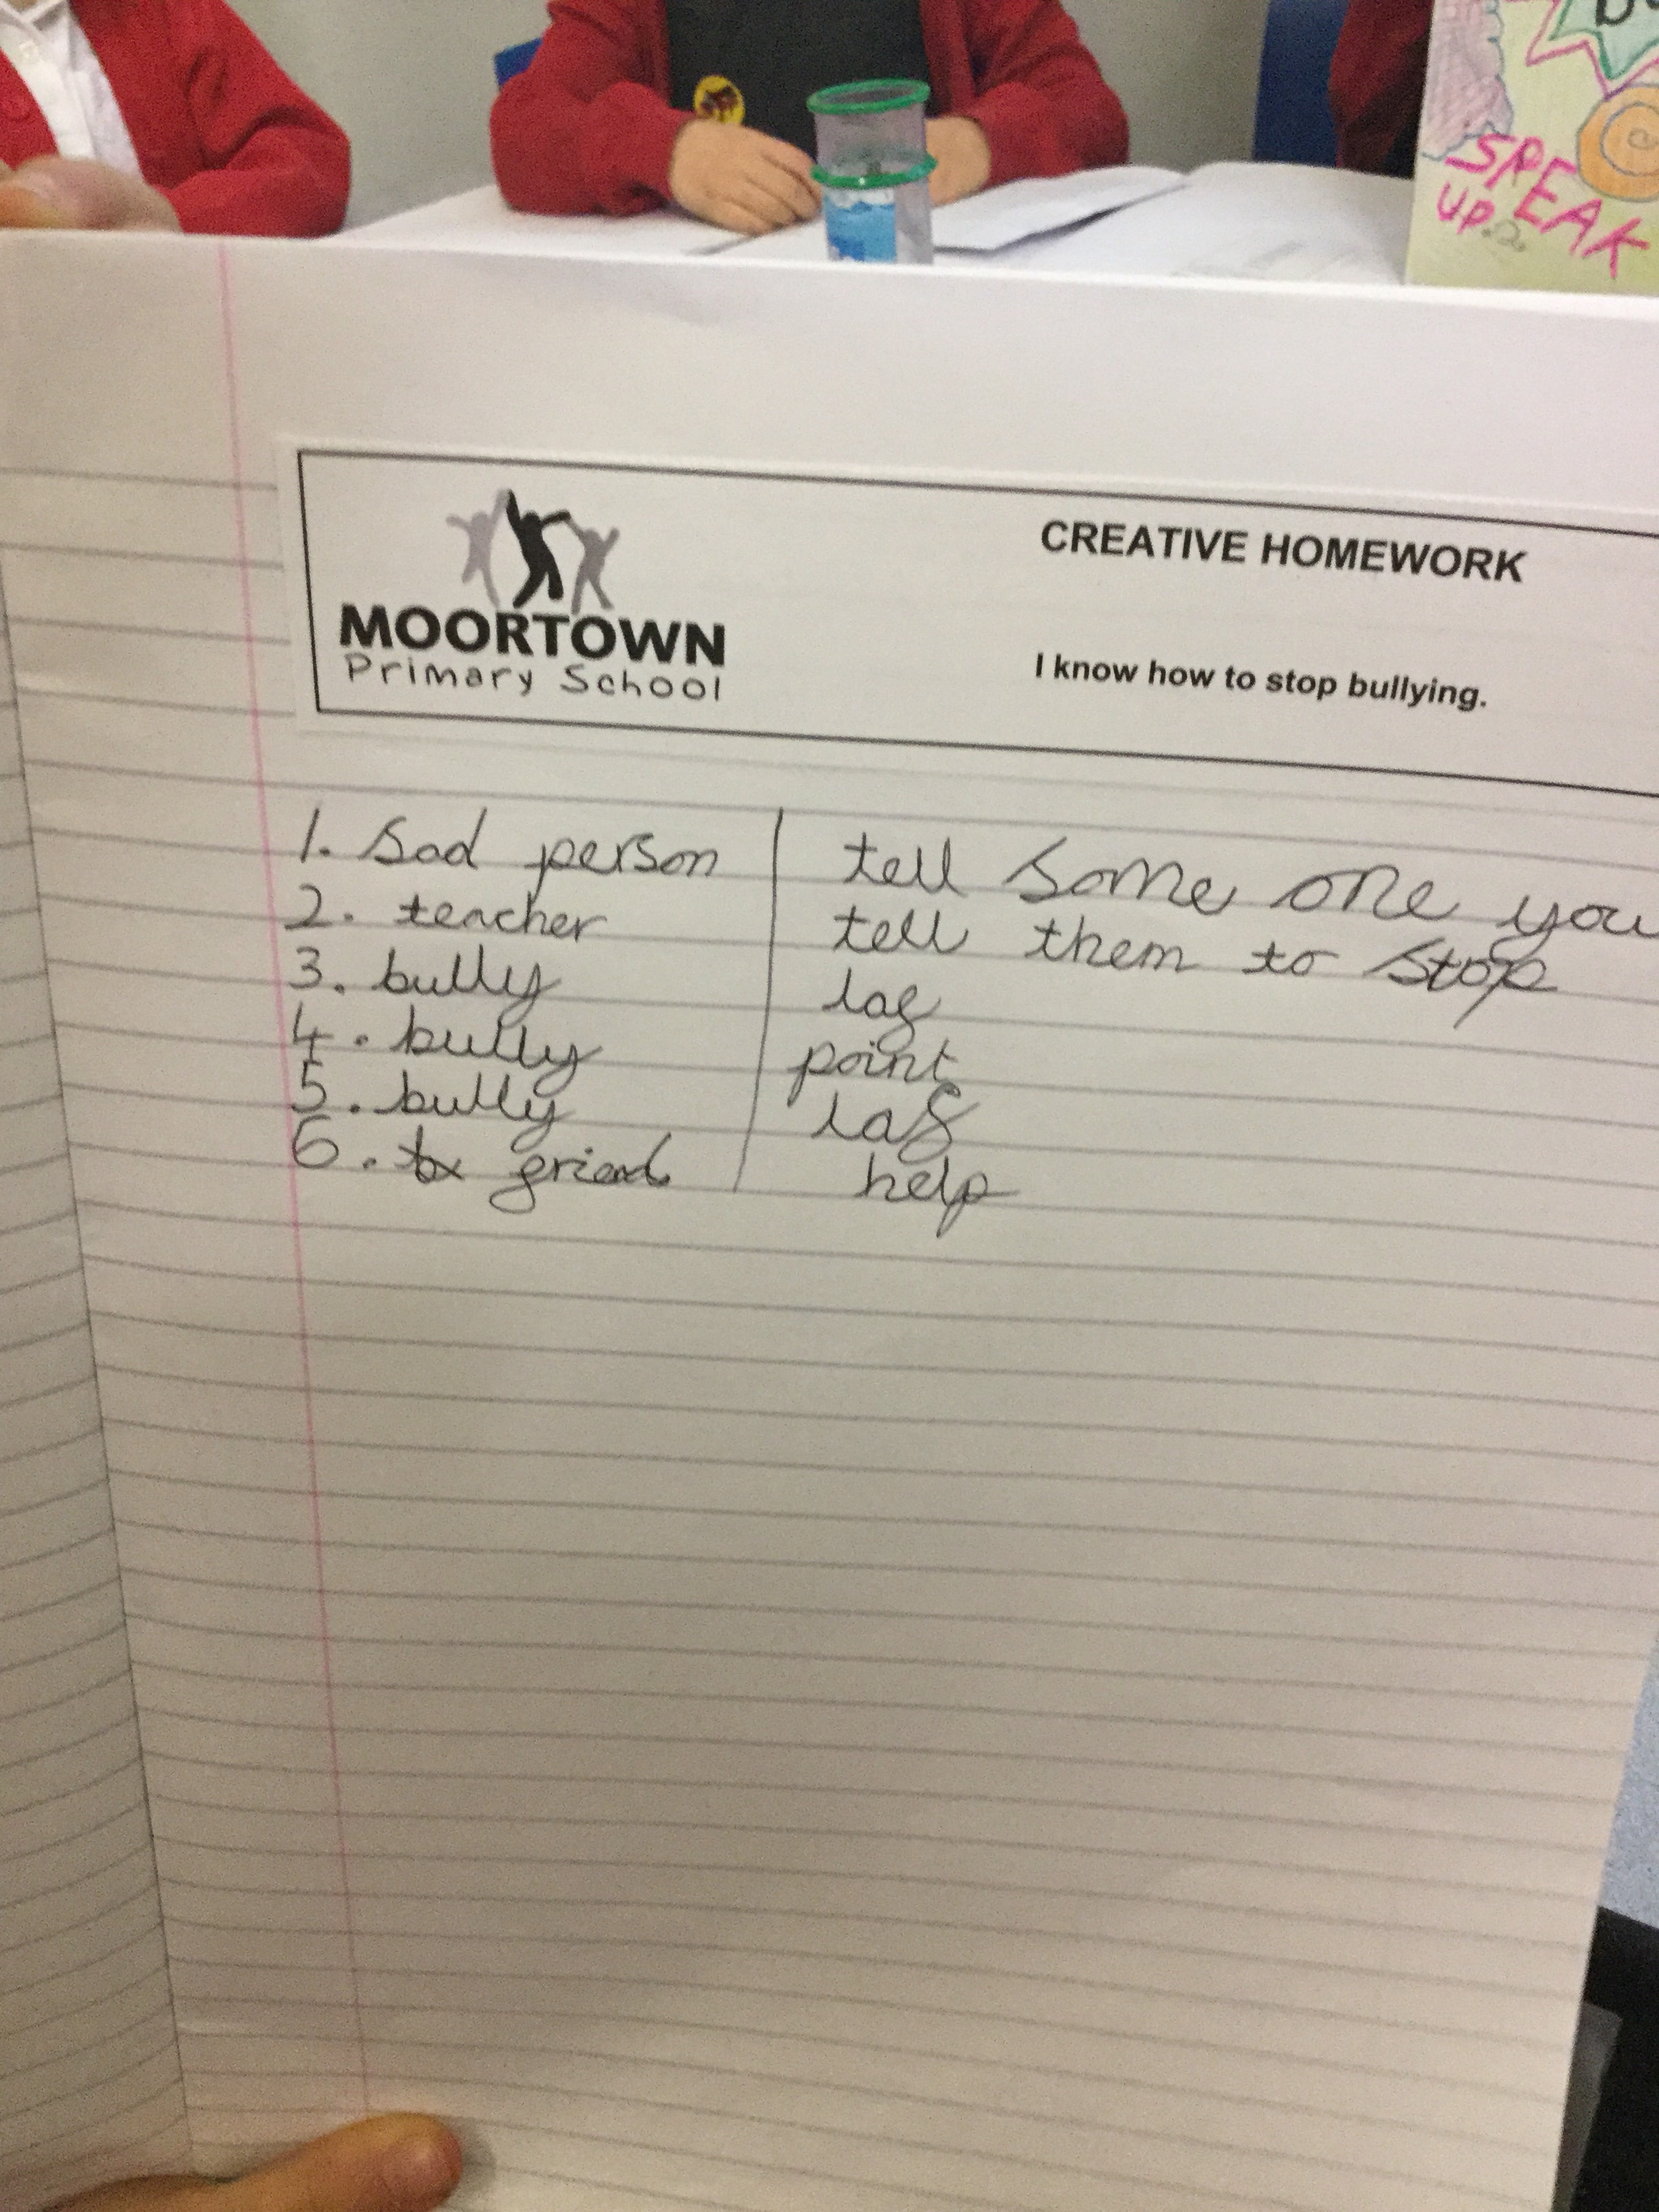 SPEAK
UP.2.
MOORTOWN
Primary School
CREATIVE HOMEWORK
I know how to stop bullying.
1. Sad person tell some one you
2. teacher tell them to stop
3. bully laf
4. bully point
5. bully laf
6. friend help